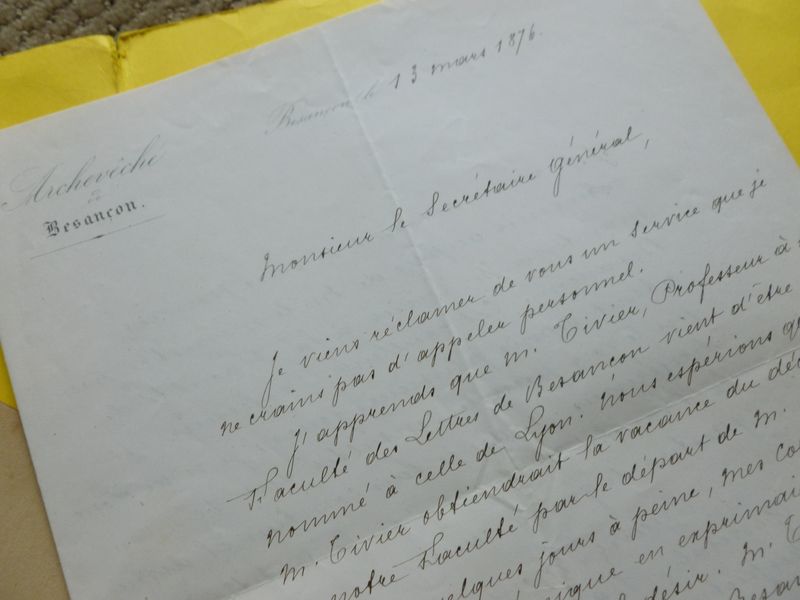 Archevêché
de
Besançon.
Besançon, le 13 mars 1876.
Monsieur le Secrétaire Général,
Je viens réclamer de vous un service que je
ne crains pas d'appeler personnel.
J'apprends que M. Tivier, Professeur à
Faculté des Lettres de Besançon vient d'être
nommé à celle de Lyon. Nous espérions
M. Tivier obtiendrait la vacance du
notre Faculté par le départ de M.
quelques jours à peine, mes
en exprimai
désir. M.